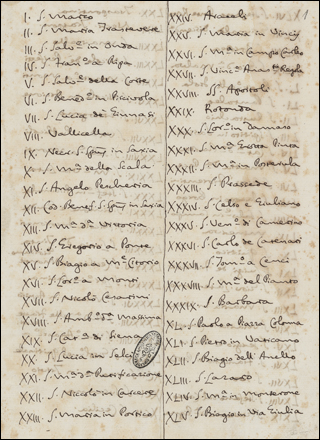 I. S. Marco
II. S. Maria Trastevere
III. S. Salv.e in Onda
IV. S. Fran.o a Ripa
V. S. Salv.e della Corte
VI. S. Bened.o in Piscivola
VII. S. Lucia de Ginnasi
VIII. Vallicella
IX. S. in Saxia
X. S. M.a della Scala
XI. S. Angelo Pescheria
XII. Cod. Benef. in Saxia
XIII. S. M.a d.a Vittoria
XIV. S. Gregorio a Ponte
XV. S. Biagio a M.e Citorio
XVI. S. Lor.o a Monti
XVII. S. Nicolò Cesarini
XVIII. S. Amb.o d.a Massima
XIX. S. Cat.a di Siena
XX. S. Lucia in Selci
XXI. S. M.a d.a Purificazione
XXII. S. Niccolò in Carcere
XXIII. S. Maria in Portico
XXIV. Araceli
XXV. S. Maria in Vincis
XXVI. S. M.a in Campo Carleo
XXVII. S. Vinc.o Anas.o Regola
XXVIII. SS. Apostoli
XXIX. Rotonda
XXX. S. Lor.o in Damaso
XXXI. S. M.a Grotta Pinta
XXXII. S. M.a in Posterula
XXXIII. S. Prassede
XXXIV. S. Celso e Giuliano
XXXV. S. Ven.o di Camerino
XXXVI. S. Carlo de Catenari
XXXVII. S. Tom.o a Cenci
XXXVIII. S. M.a del Pianto
XXXIX. S. Barbara
XL. S. Paolo a Piazza Colonna
XLI. S. Pietro in Vaticano
XLII. S. Biagio dell' Anello
XLIII. S. Lazzaro
XLIV. S. M.a in Monterone
XLV. S. Biagio in Via Giulia